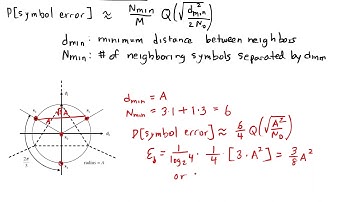 P[symbol error] ≈ Nmin/M Q(√(d²min/2N₀))
dmin: minimum distance between neighbors
Nmin: # of neighboring symbols separated by dmin
dmin = A
Nmin = 3·1 + 1·3 = 6
P[symbol error] ≈ 6/4 Q(√(A²/N₀))
A A
A
Eb = 1/log₂4 · 1/4 · [3·A²] = 3/8 A²
2π/3
radius = A
or